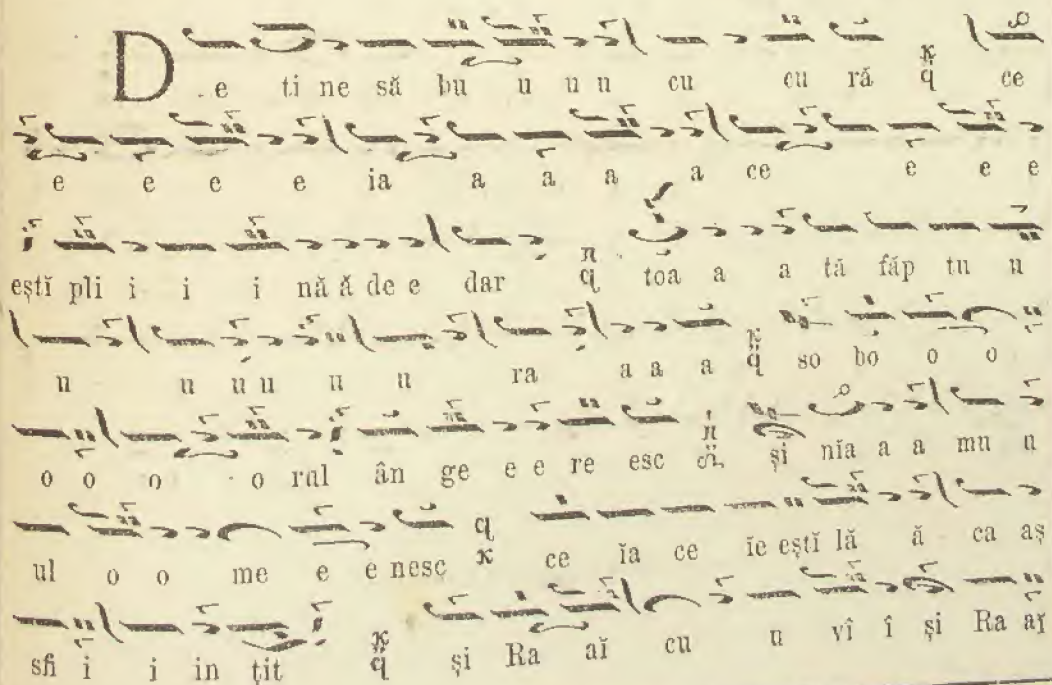 De ti ne să bu u u u cu cu ră ce
e e e e ia a a a a ce e e e
eștĭ pli i i i nă ă de e dar toa a a tă făp tu u
u u u u u u ra a a a so bo o o
o o o o rul ân ge e e re esc și nĭa a a mu u
ul o o me e e nesc ce ĭa ce ĭe eștĭ lă ă ca aș
sfi i i in țit și Ra aĭ cu u vî î și Ra aĭ